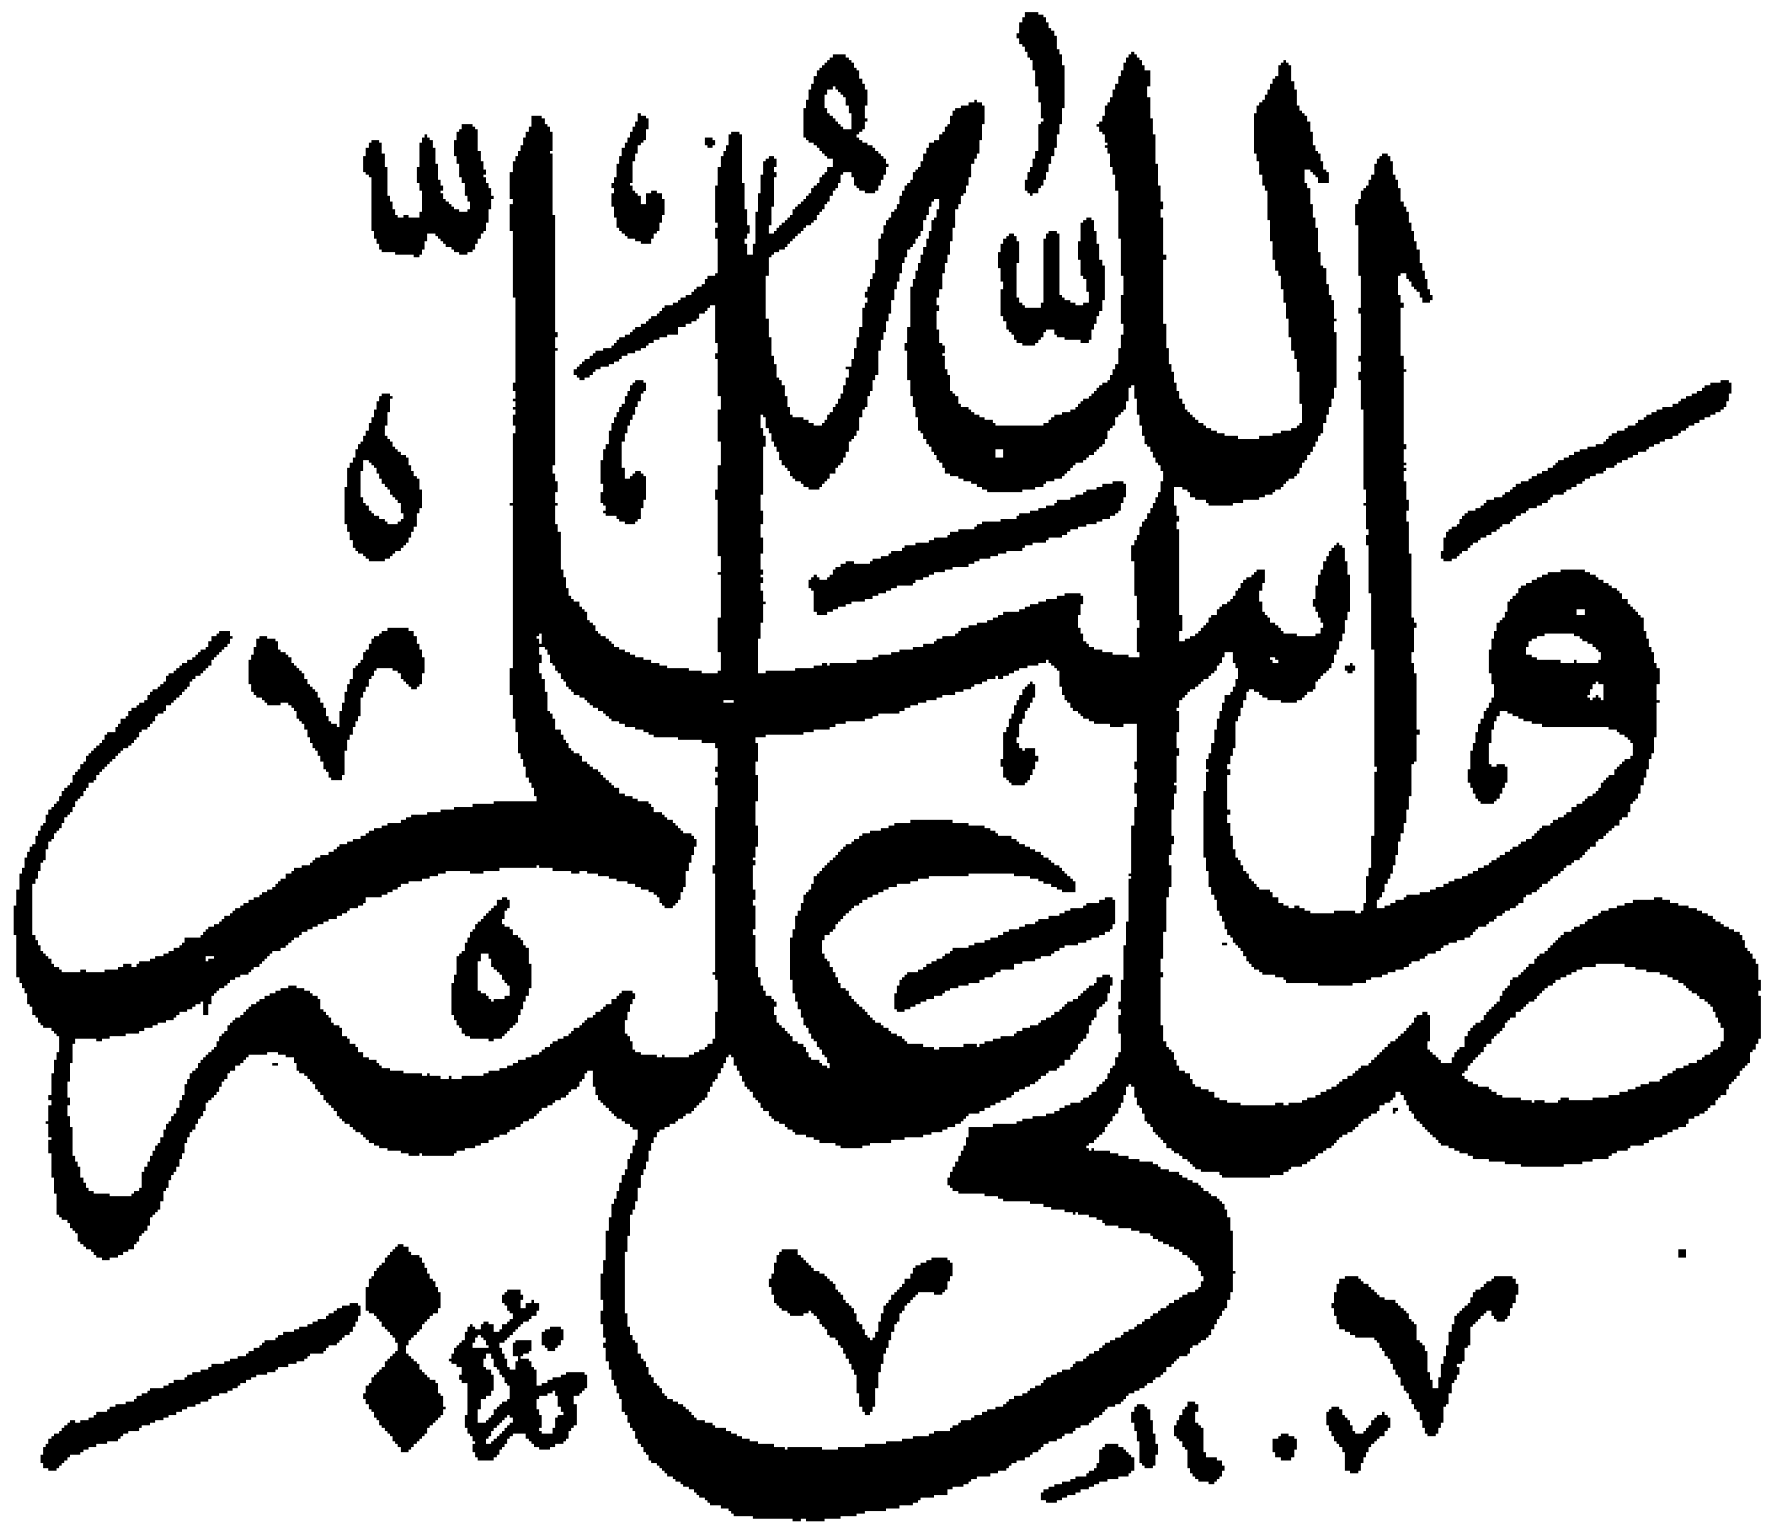 صلى الله عليه وسلم
١٤٠٧ هـ